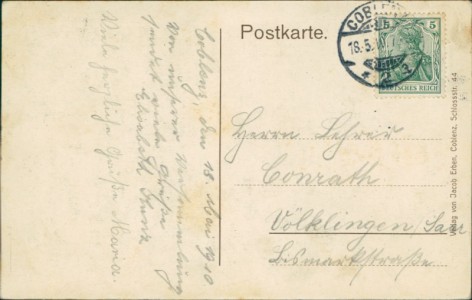 Postkarte.
COBLENZ
18.5.10
5 5
DEUTSCHES REICH
Coblenz, den 18. Mai 1910
Von unserer Versammlung
sendet viele Grüße
Elisabeth
Viele herzliche Grüße Maria.
Herrn Lehrer
Conrath
Völklingen Saar
Bismarkstraße.
Verlag von Jacob Erben, Coblenz, Schlossstr. 44